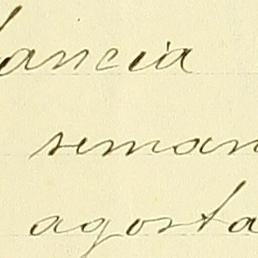 lancia
seman
agosta